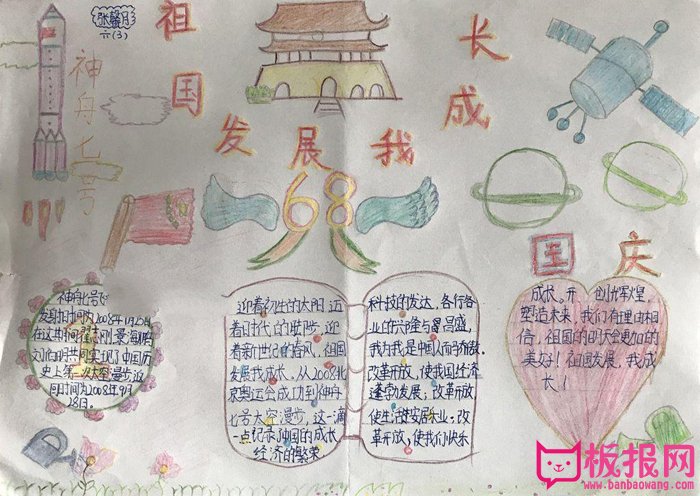 张馨月
六(3)
祖国发展我成长
神舟七号
68
国庆
神舟七号飞
发射时间为2008年9月25日
在这其间翟志刚景海鹏
刘伯明共同实现了中国历
史上第一次太空漫步返
回时间为2008年9月
28日。
迎着初生的太阳迈
着时代的脚步,迎
着新世纪的春风,祖国
发展我成长。从2008北
京奥运会成功到神舟
七号太空漫步,这一滴
一点纪录中国的成长
经济的繁荣
科技的发达,各行各
业的兴隆与昌盛,
我为我是中国人而骄傲。
改革开放,使我国经济
蓬勃发展;改革开放
使生活安居乐业;改
革开放,使我们快乐
成长。开创辉煌,
塑造未来,我们有理由相
信,祖国的明天会更加的
美好!祖国发展,我成
长!
板报网
www.banbaowang.com